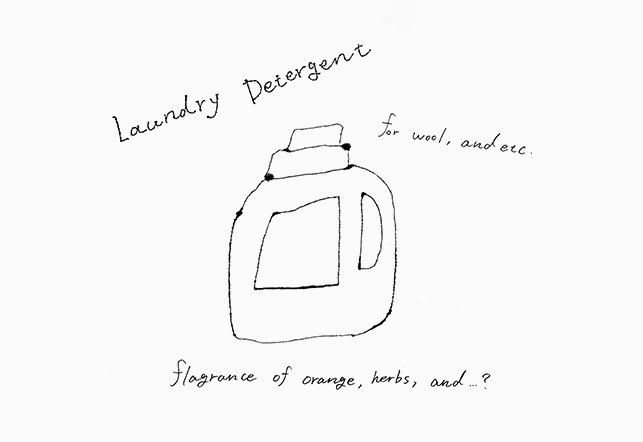 Laundry Detergent
for wool, and etc.
flagrance of orange, herbs, and...?